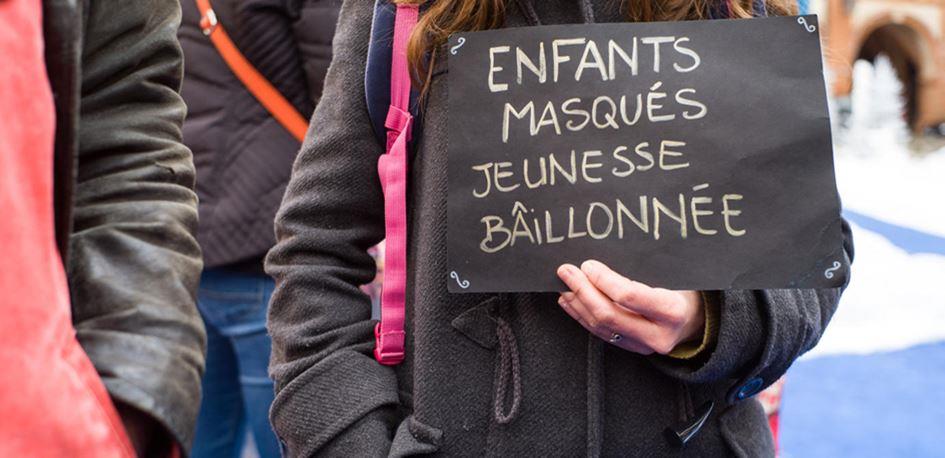 ENFANTS
MASQUÉS
JEUNESSE
BÂïLLONNÉE